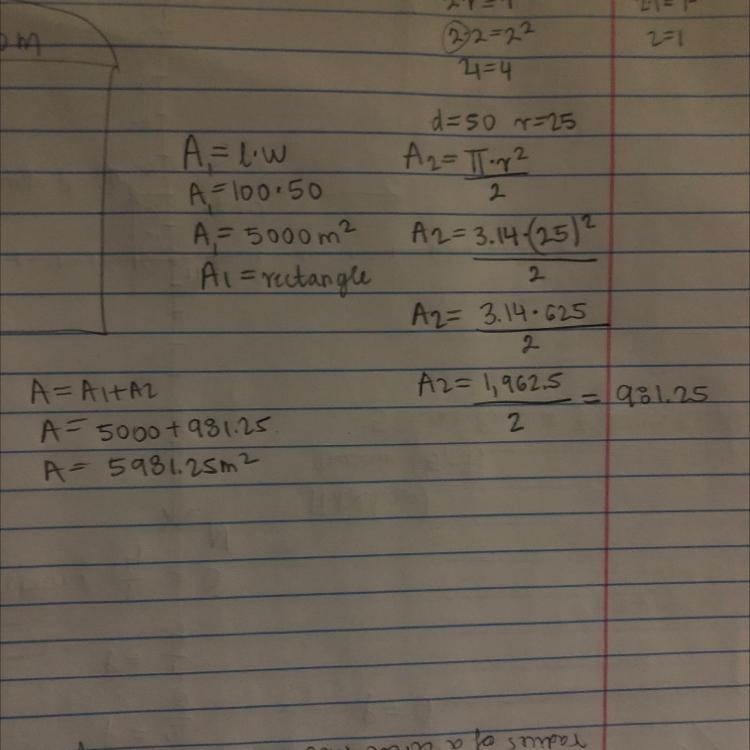 2·2=2²
4=4
2=1
om
d=50 r=25
A₁=l·w
A₁=100·50
A₁=5000m²
A1=rectangle
A2=π·r²/2
A2=3.14·(25)²/2
A2=3.14·625/2
A2=1,962.5/2=981.25
A=A1+A2
A=5000+981.25
A=5981.25m²
radius of a